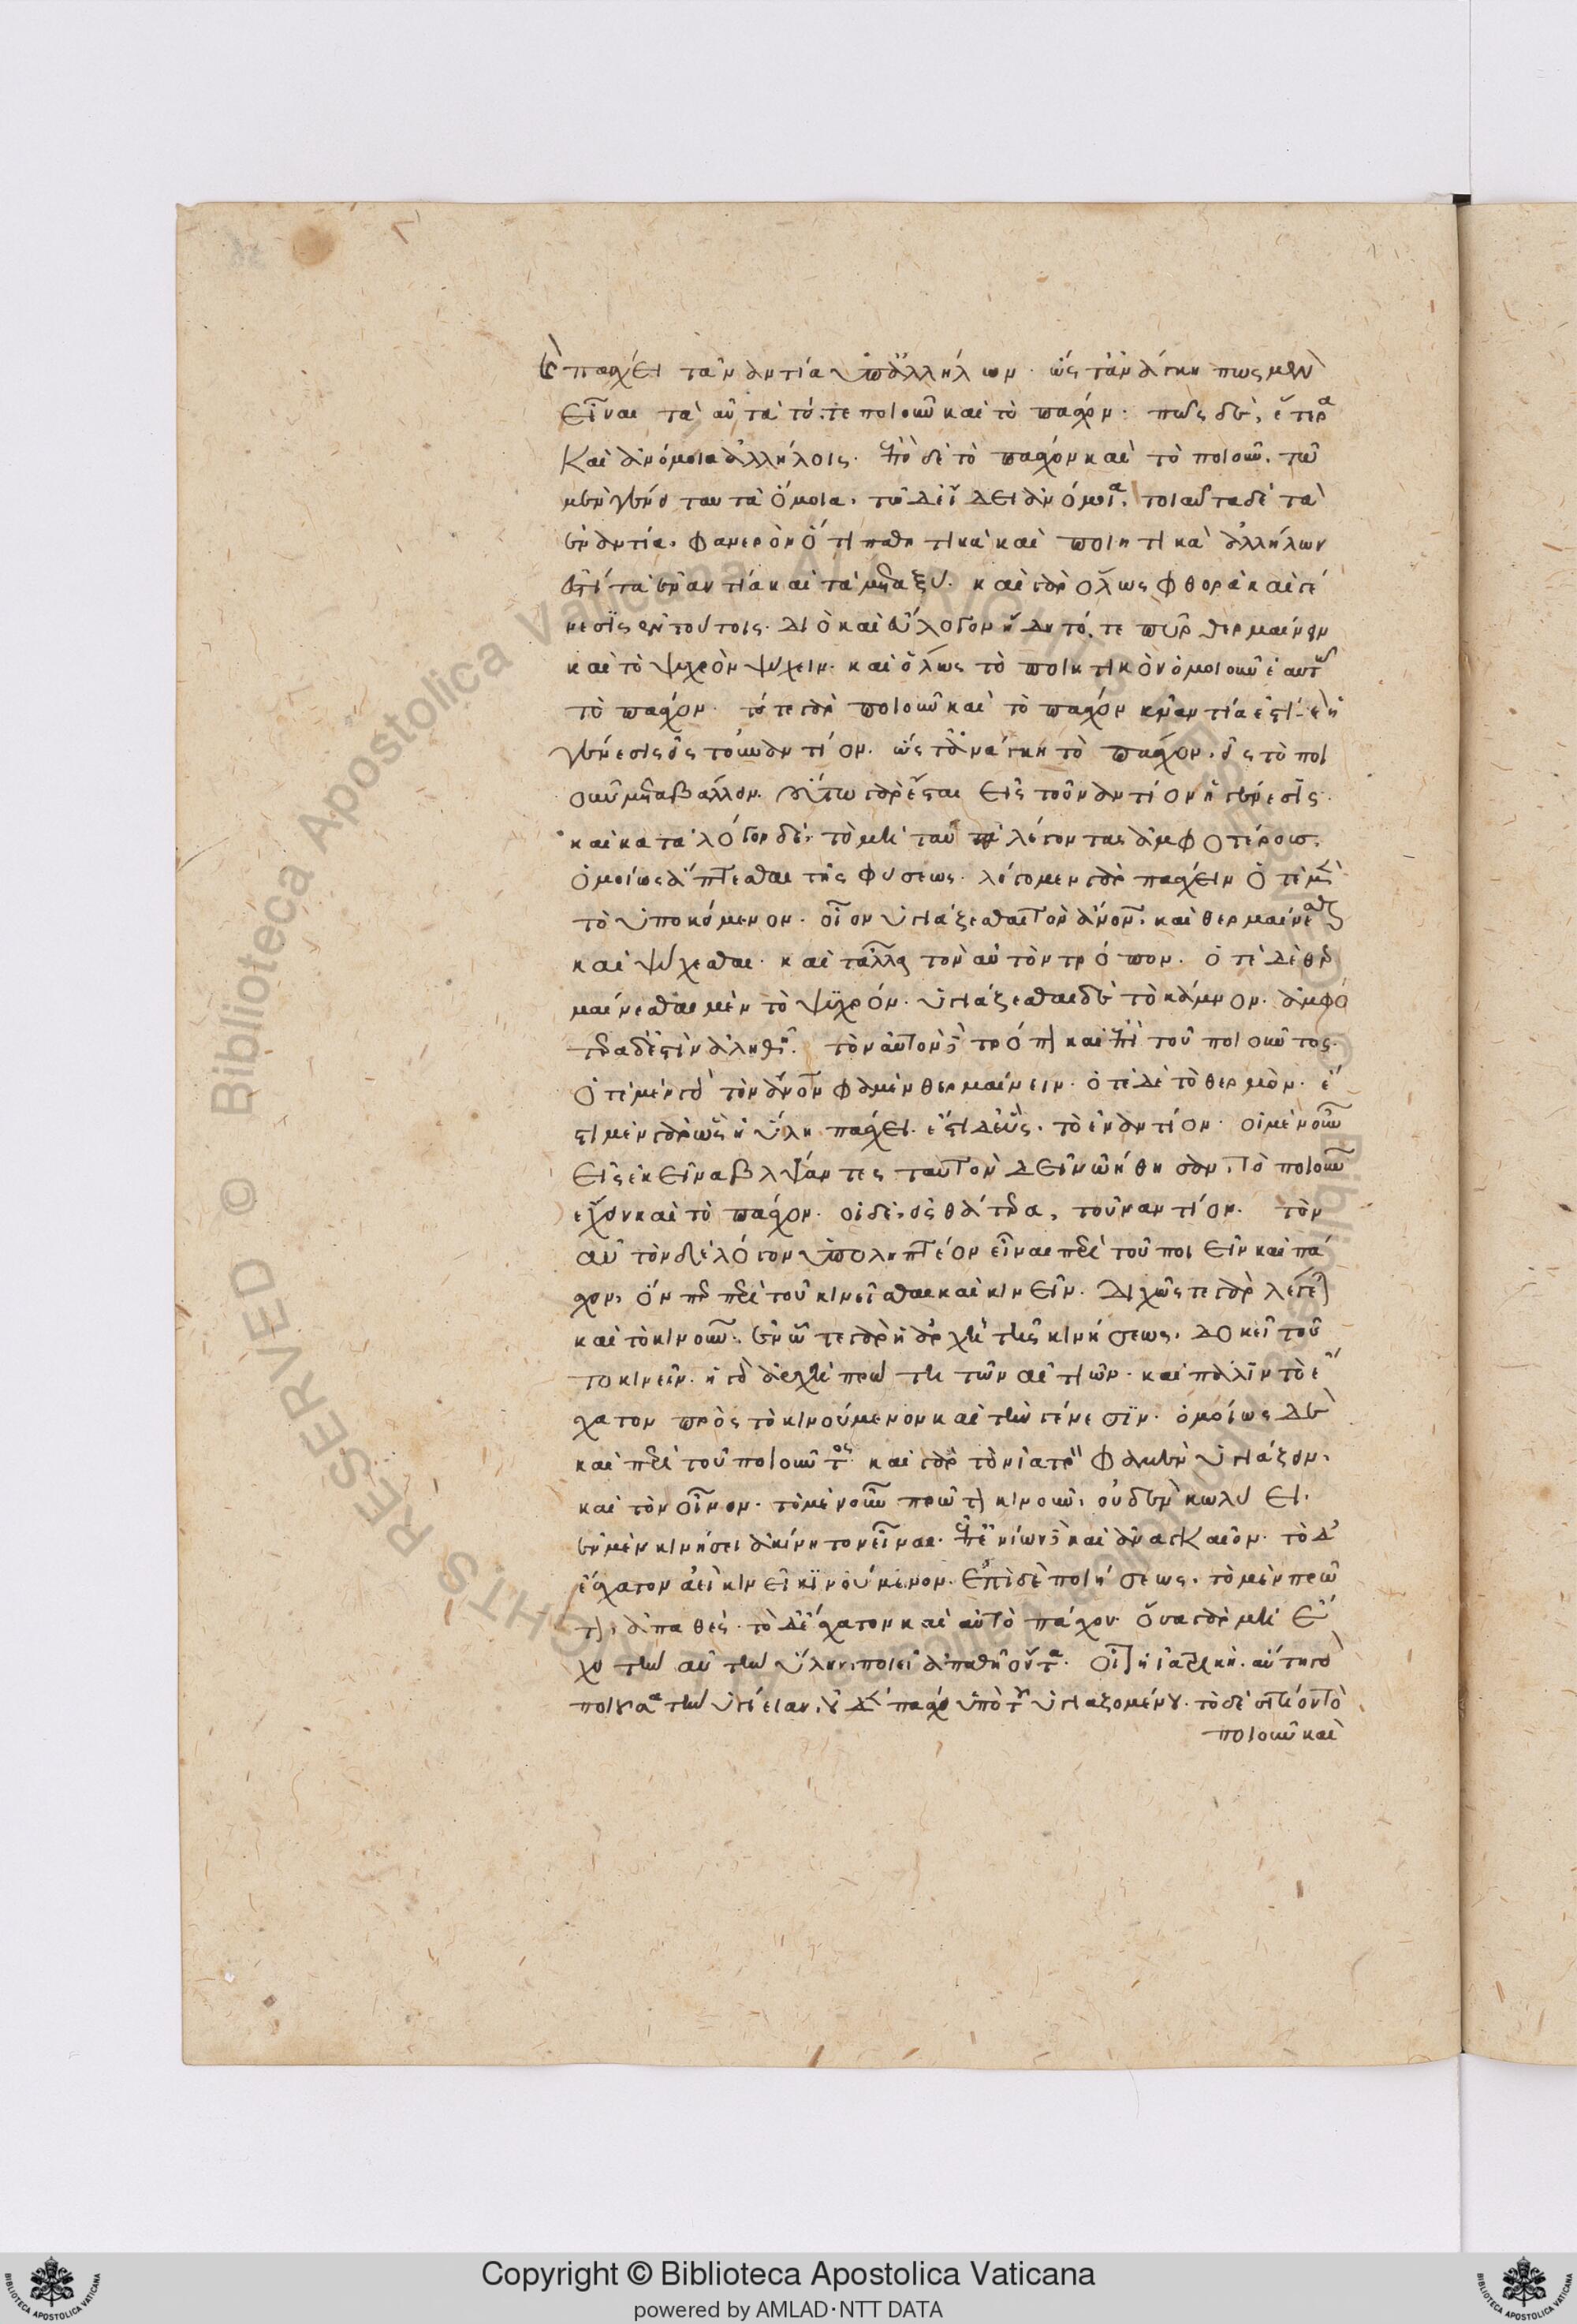 καὶ πάσχει τἀναντία ὑπ' ἀλλήλων. ὥστ' ἀνάγκη πως μὲν
εἶναι ταὐτὰ τό, τε ποιοῦν καὶ τὸ πάσχον. πῶς δὲ, ἕτερα
καὶ ἀνόμοια ἀλλήλοις. ἐπεὶ δὲ τὸ πάσχον καὶ τὸ ποιοῦν. τῷ
μὲν γένει ταυτὰ ὅμοια. τῷ δ' εἴδει ἀνόμοια. τοιαῦτα δὲ τὰ
ἐναντία. φανερὸν ὅτι παθητικὰ καὶ ποιητικὰ ἀλλήλων
ἐστὶ τὰ ἐναντία καὶ τὰ μεταξύ. καὶ γὰρ ὅλως φθορὰ καὶ γέ
νεσις ἐν τούτοις. διὸ καὶ εὔλογον ἤδη τό, τε πῦρ θερμαίνειν
καὶ τὸ ψυχρὸν ψύχειν. καὶ ὅλως τὸ ποιητικὸν ὁμοιοῦν ἑαυτῷ
τὸ πάσχον. τό τε γὰρ ποιοῦν καὶ τὸ πάσχον ἐναντία ἐστί. καὶ ἡ
γένεσις εἰς τοὐναντίον. ὥστ' ἀνάγκη τὸ πάσχον. εἰς τὸ ποι
οῦν μεταβάλλειν. οὕτω γὰρ ἔσται εἰς τοὐναντίον ἡ γένεσις.
καὶ κατὰ λόγον δὲ, τὸ μὴ ταὐτὰ λέγοντας ἀμφοτέρους.
ὁμοίως ἅπτεσθαι τῆς φύσεως. λέγομεν γὰρ πάσχειν ὁτὲ μὲν
τὸ ὑποκείμενον. οἷον ὑγιάζεσθαι τὸν ἄνθρωπον. καὶ θερμαίνεσθαι
καὶ ψύχεσθαι. καὶ τἆλλα τὸν αὐτὸν τρόπον. ὁτὲ δὲ θερ
μαίνεσθαι μὲν τὸ ψυχρόν. ὑγιάζεσθαι δὲ τὸ κάμνον. ἀμφό
τερα δέ ἐστιν ἀληθῆ. τὸν αὐτὸν δὲ τρόπον καὶ ἐπὶ τοῦ ποιοῦντος.
ὁτὲ μὲν γὰρ τὸν ἄνθρωπον φαμὲν θερμαίνειν. ὁτὲ δὲ τὸ θερμὸν. ἔ
στι μὲν γὰρ ὡς ἡ ὕλη πάσχει. ἔστι δὲ ὡς. τὸ ἐναντίον. οἱ μὲν οὖν
εἰς ἐκεῖνα βλέψαντες ταὐτόν δεῖν ᾠήθησαν. τὸ ποιοῦν
ἔχειν καὶ τὸ πάσχον. οἱ δὲ, εἰς θάτερα, τοὐναντίον. τὸν
αὐτὸν δὲ λόγον ὑποληπτέον εἶναι περὶ τοῦ ποιεῖν καὶ πά
σχειν, ὅν περ περὶ τοῦ κινεῖσθαι καὶ κινεῖν. διχῶς τε γὰρ λέγεται
καὶ τὸ κινοῦν. ἐν ᾧ τε γὰρ ἡ ἀρχὴ τῆς κινήσεως, δοκεῖ τοῦ
το κινεῖν. ἡ γὰρ ἀρχὴ πρώτη τῶν αἰτιῶν. καὶ πάλιν τὸ ἔ
σχατον πρὸς τὸ κινούμενον καὶ τὴν γένεσιν. ὁμοίως δὲ
καὶ περὶ τοῦ ποιοῦντος. καὶ γὰρ τὸν ἰατρόν φαμὲν ὑγιάζειν.
καὶ τὸν οἶνον. τὸ μὲν οὖν πρῶτον κινοῦν, οὐδὲν κωλύει.
ἐν μὲν κινήσει ἀκίνητον εἶναι. ἐπ' ἐνίων δὲ καὶ ἀναγκαῖον. τὸ δ'
ἔσχατον ἀεὶ κινεῖ κινούμενον. ἐπὶ δὲ ποιήσεως. τὸ μὲν πρῶ
τον, ἀπαθές. τὸ δ' ἔσχατον καὶ αὐτὸ πάσχον. ὅσα γὰρ μὴ ἔ
χει τὴν αὐτὴν ὕλην, ποιεῖ ἀπαθῆ ὄντα. οἷον ἡ ἰατρική. αὐτὴ γὰρ
ποιοῦσα τὴν ὑγίειαν, οὐδὲν πάσχει ὑπὸ τοῦ ὑγιαζομένου. τὸ δὲ σιτίον τὸ
ποιοῦν καὶ